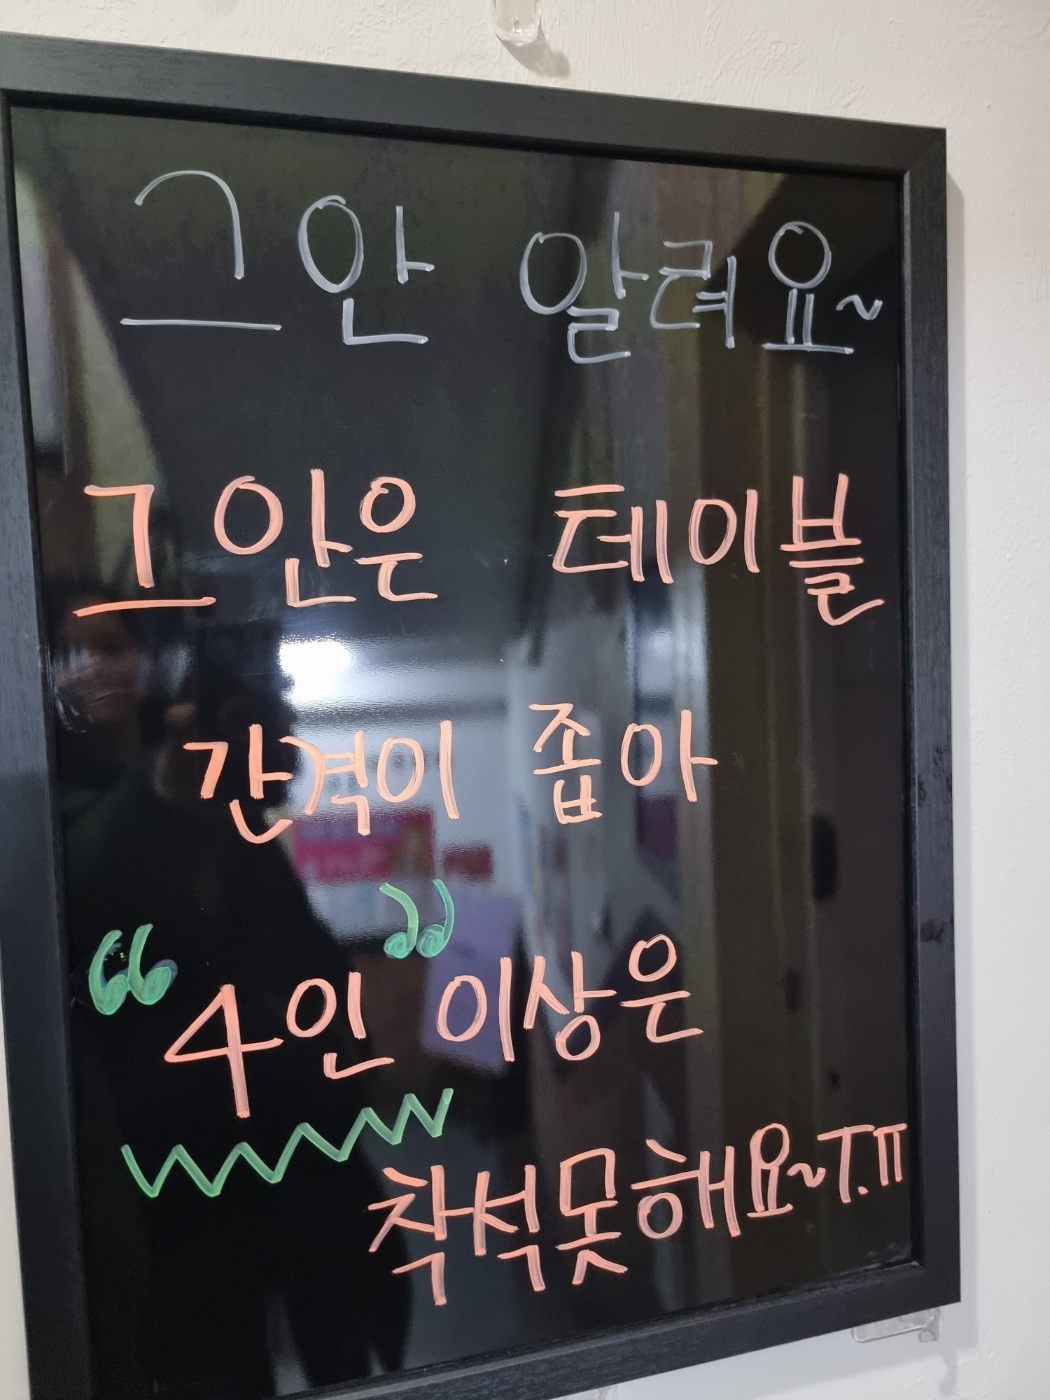 그안 알려요~
그안은 테이블
간격이 좁아
"4인" 이상은
착석못해요~T.ㅠ